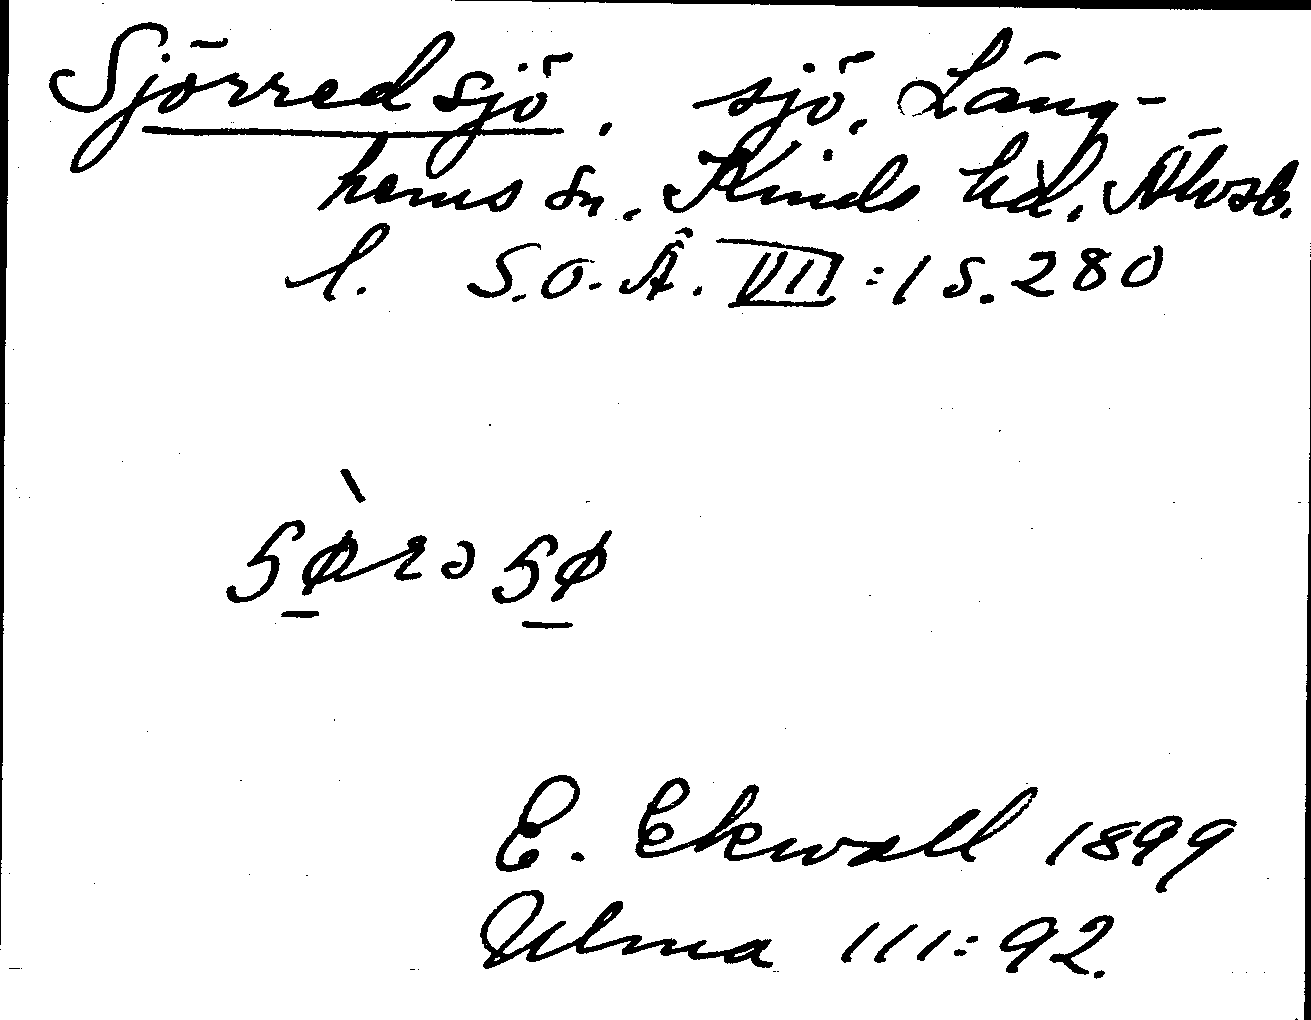 Sjörredsjö. sjö, Läng-
hems sn. Kinds hd. Älvsb.
l. S.O.Ä. VII:1 s. 280
ʂø̀rəʂø
E. Ekwall 1899
Ulma 111:92.